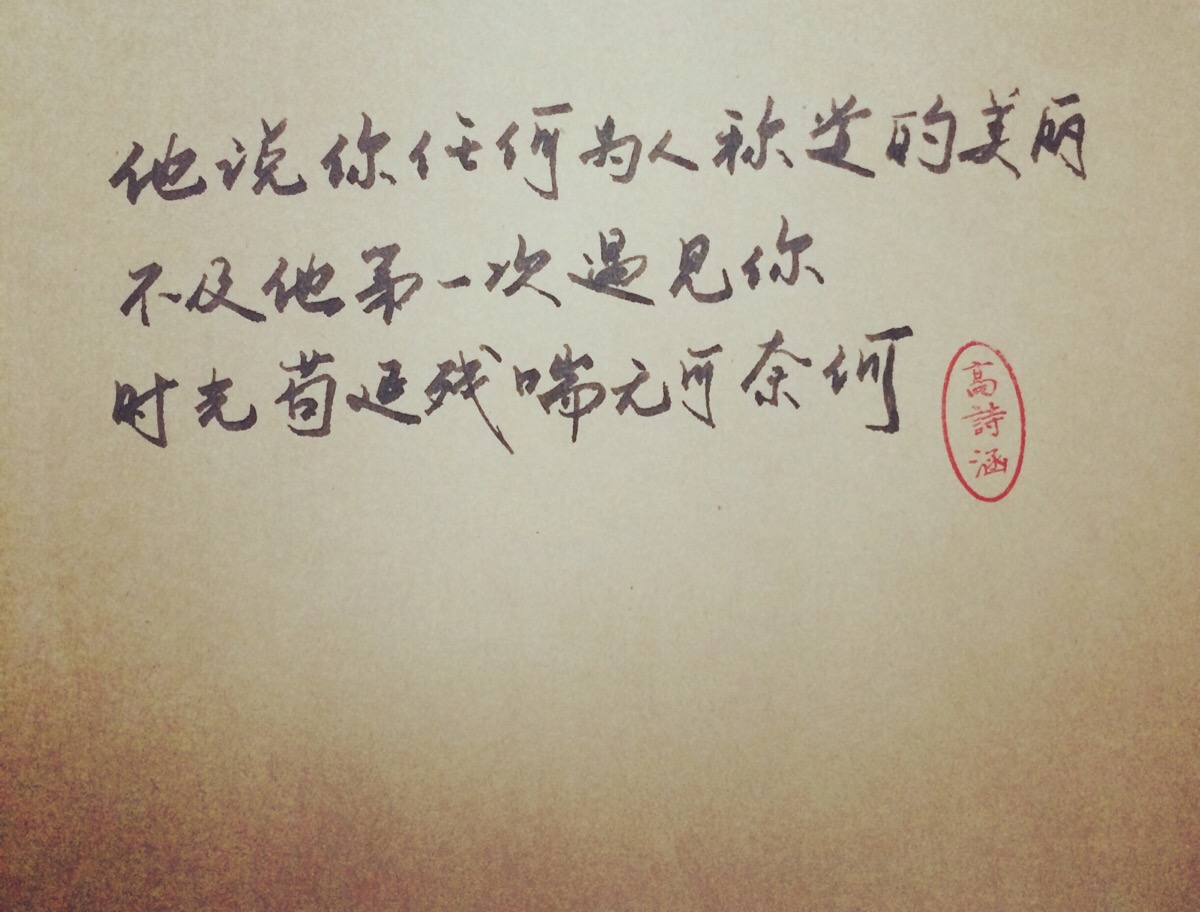 他说你任何为人称道的美丽
不及他第一次遇见你
时光苟延残喘无可奈何
高詩涵